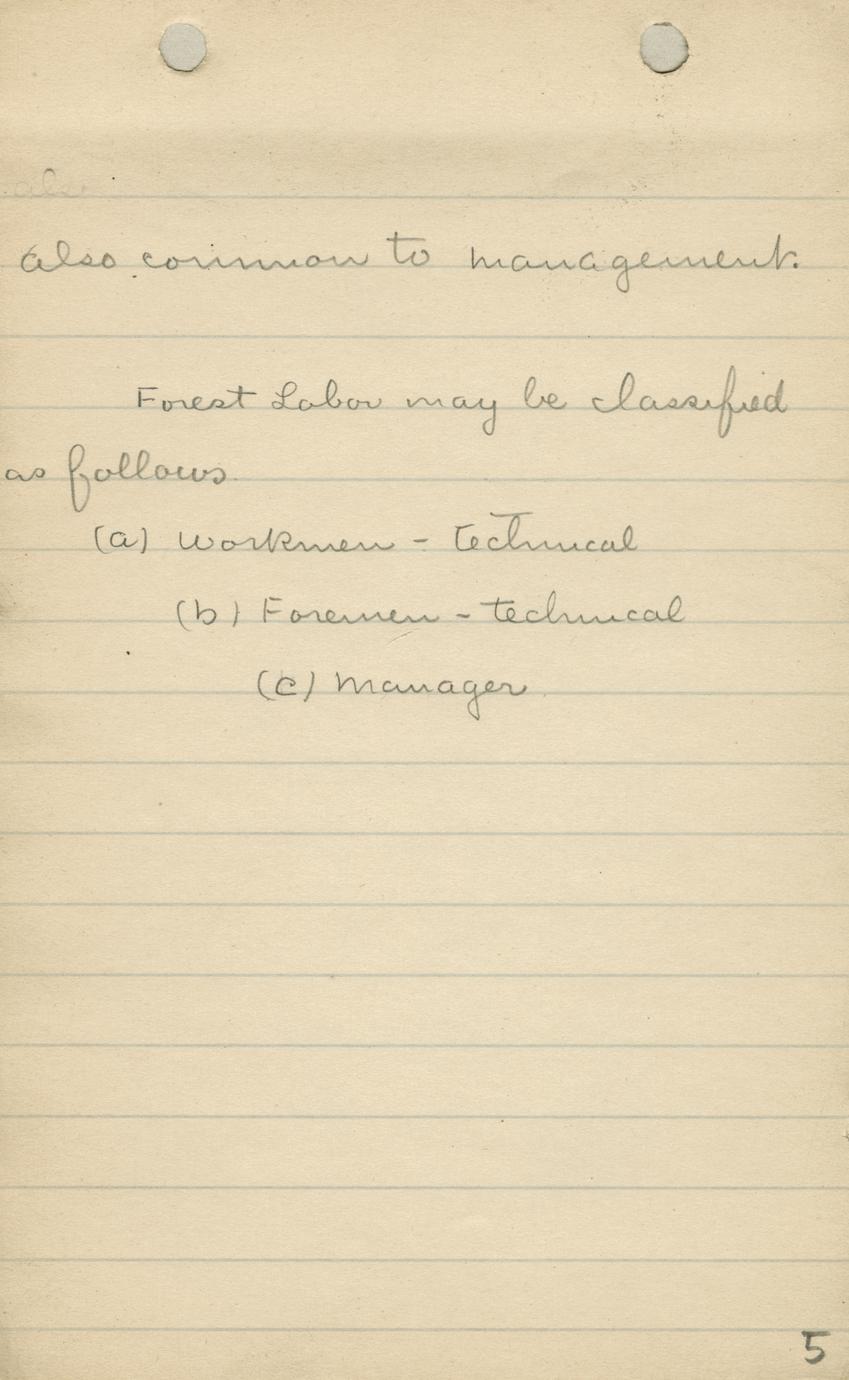 also
also common to management.
Forest Labor may be classified
as follows.
(a) Workmen - technical
(b) Foremen - technical
(c) Manager
5